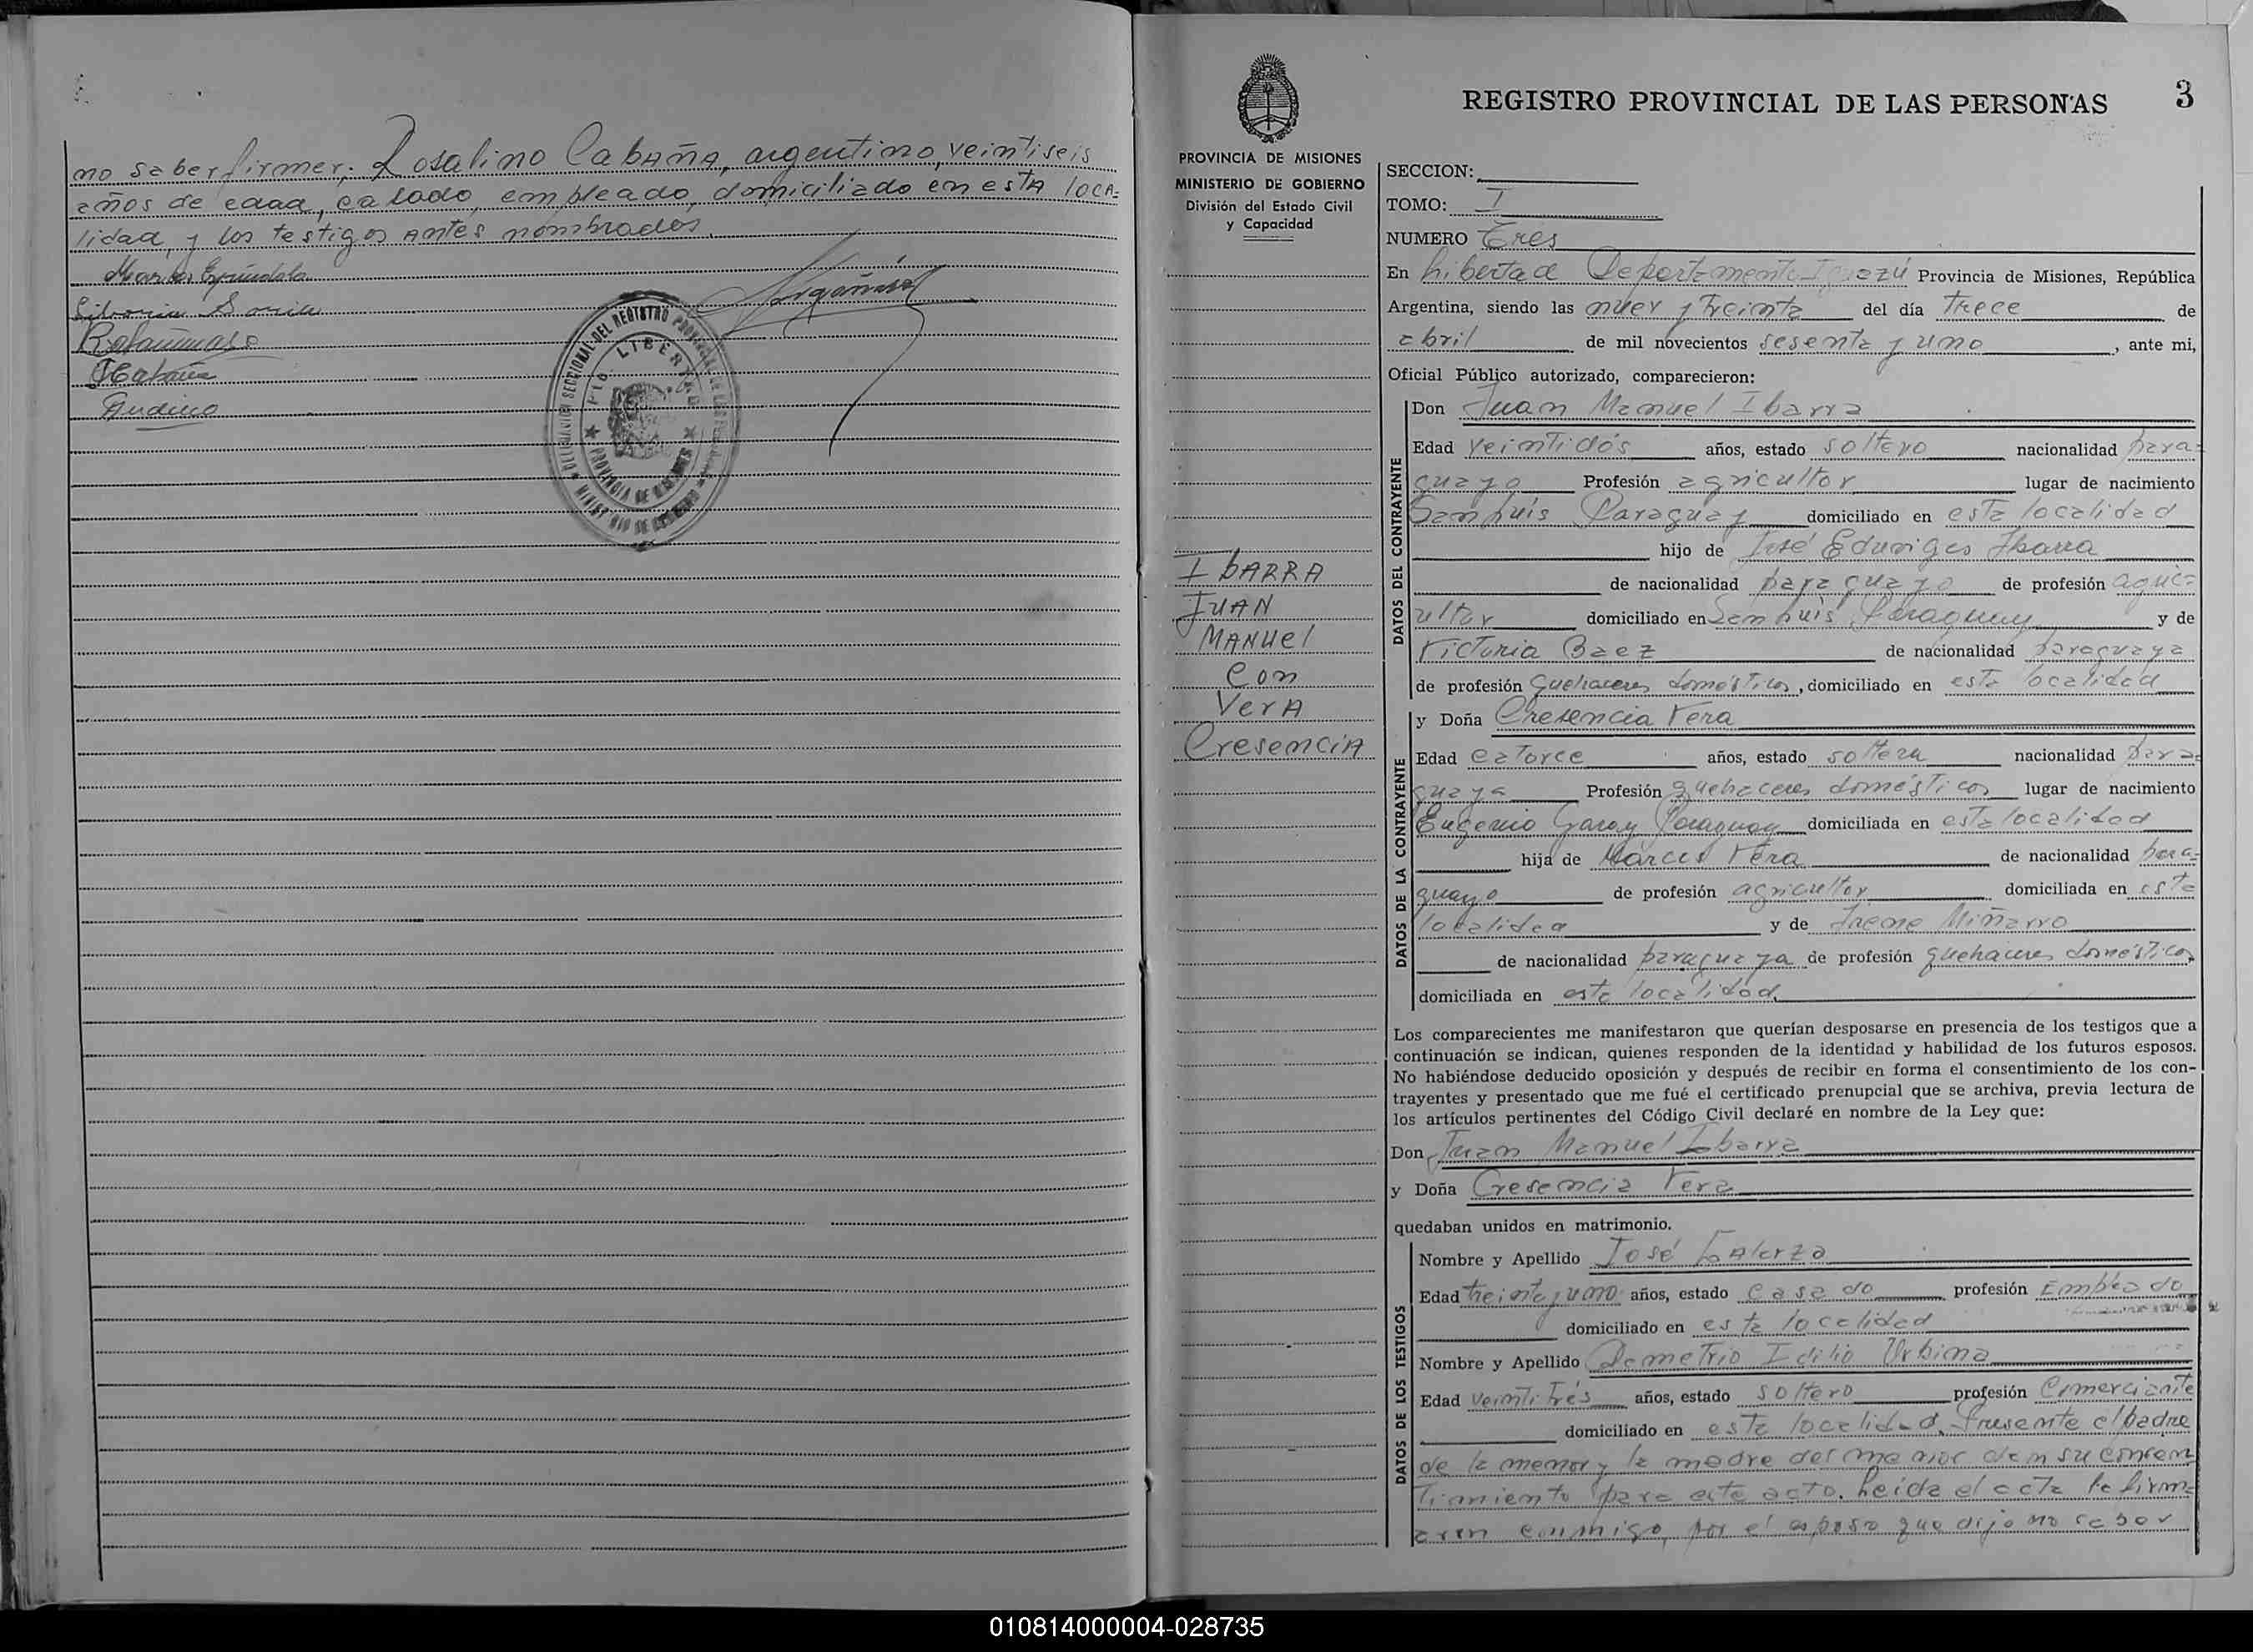 no saber firmar; Rosalino Cabaña, argentino, veintiseis
años de edad, casado, empleado, domiciliado en esta loca=
lidad, y los testigos antes nombrados.
DELEGACION SECCIONAL DEL REGISTRO PROVINCIAL DE LAS
PTO. LIBERTAD
PROVINCIA DE MISIONES
MINISTERIO DE GOBIERNO
REGISTRO PROVINCIAL DE LAS PERSONAS
3
PROVINCIA DE MISIONES
MINISTERIO DE GOBIERNO
División del Estado Civil
y Capacidad
IBARRA
JUAN
MANUEL
Con
VERA
CresenciA
SECCION:
TOMO: I
NUMERO Tres
En Libertad Departamento Iguazú Provincia de Misiones, República
Argentina, siendo las nuev y treinta del día trece de
abril de mil novecientos sesenta y uno, ante mi,
Oficial Público autorizado, comparecieron:
DATOS DEL CONTRAYENTE
Don Juan Manuel Ibarra
Edad veintidós años, estado soltero nacionalidad para=
guayo Profesión agricultor lugar de nacimiento
San Luis Paraguay domiciliado en esta localidad
hijo de José Eduviges Ibarra
de nacionalidad paraguayo de profesión agric=
ultor domiciliado en San Luis Paraguay y de
Victoria Baez de nacionalidad paraguaya
de profesión quehaceres domésticos, domiciliado en esta localidad
DATOS DE LA CONTRAYENTE
y Doña Cresencia Vera
Edad catorce años, estado soltera nacionalidad para=
guaya Profesión quehaceres domésticos lugar de nacimiento
Eugenio Garay Paraguay domiciliada en esta localidad
hija de Marcos Vera de nacionalidad para=
guayo de profesión agricultor domiciliada en esta
localidad y de Irene Miñarro
de nacionalidad paraguaya de profesión quehaceres domésticos
domiciliada en esta localidad.
Los comparecientes me manifestaron que querían desposarse en presencia de los testigos que a
continuación se indican, quienes responden de la identidad y habilidad de los futuros esposos.
No habiéndose deducido oposición y después de recibir en forma el consentimiento de los con-
trayentes y presentado que me fué el certificado prenupcial que se archiva, previa lectura de
los artículos pertinentes del Código Civil declaré en nombre de la Ley que:
Don Juan Manuel Ibarra
y Doña Cresencia Vera
quedaban unidos en matrimonio.
DATOS DE LOS TESTIGOS
Nombre y Apellido José Galarza
Edad treinta y uno años, estado casado profesión Empleado
domiciliado en esta localidad
Nombre y Apellido Demetrio Idilio Urbina
Edad veintitrés años, estado soltero profesión Comerciante
domiciliado en esta localidad. Presente el padre
de la menor y la madre del menor dan su consen
timiento para este acto. Leida el acta la firma=
aron conmigo, por el esposo que dijo no saber
010814000004-028735